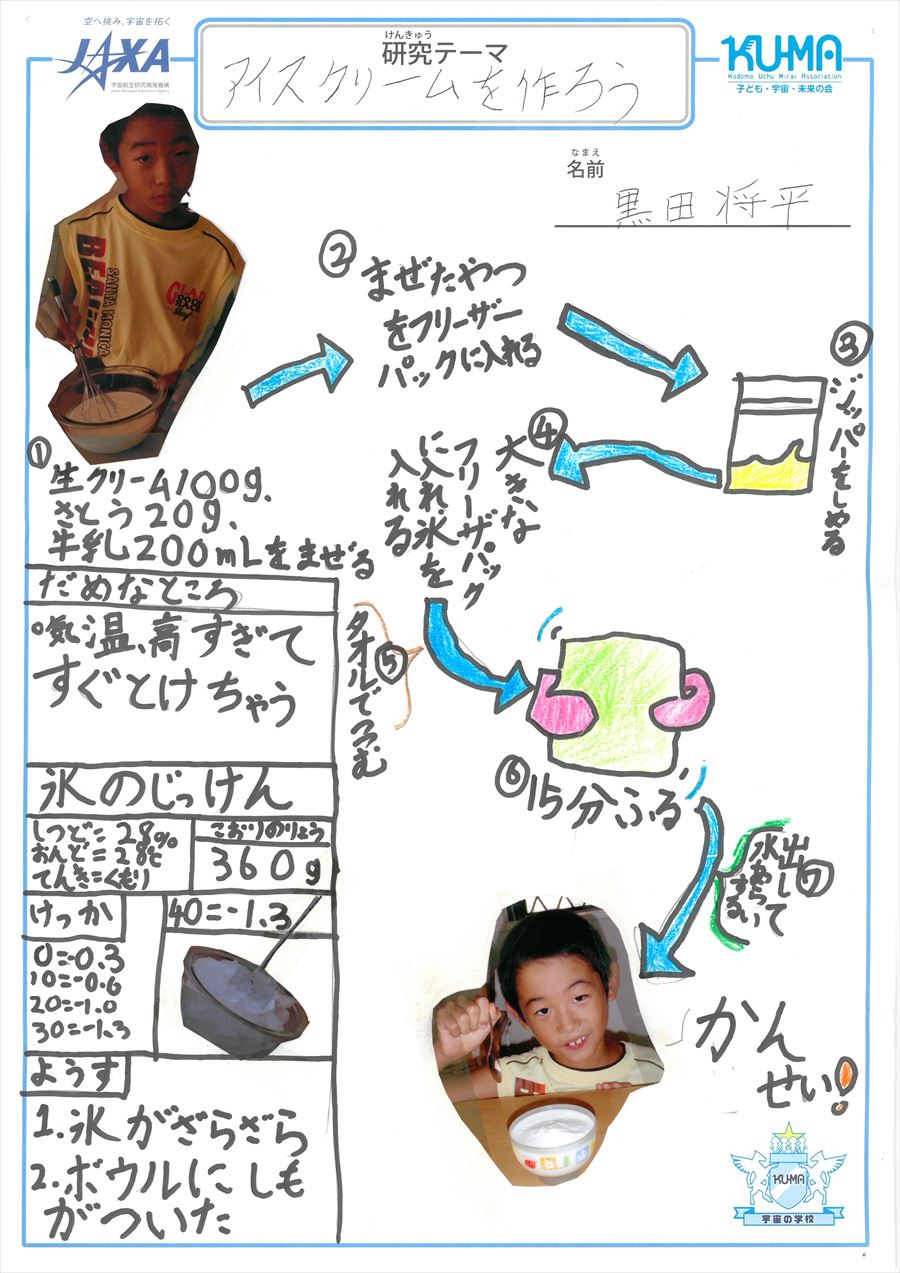 空へ挑み、宇宙を拓く
JAXA
宇宙航空研究開発機構
Japan Aerospace Exploration Agency
けんきゅう
研究テーマ
アイスクリームを作ろう
KU-MA
Kodomo Uchu Mirai Association
子ども・宇宙・未来の会
なまえ
名前
黒田将平
SANTA MONICA
①
生クリーム100g、
さとう20g、
牛乳200mLをまぜる
②
まぜたやつ
をフリーザー
パックに入れる
③
ジッパーをしめる
④
大きな
フリーザパック
に入れ氷を
入れる
⑤
タオルでつつむ
⑥15分ふる
⑦
出して
水あらい
する
かん
せい!
だめなところ
・気温、高すぎて
すぐとけちゃう
氷のじっけん
しつど=28%
おんど=28℃
てんき=くもり
こおりのりょう
360g
けっか
40=-1.3
0=-0.3
10=-0.6
20=-1.0
30=-1.3
ようす
1.氷がざらざら
2.ボウルにしも
がついた
KU-MA
宇宙の学校